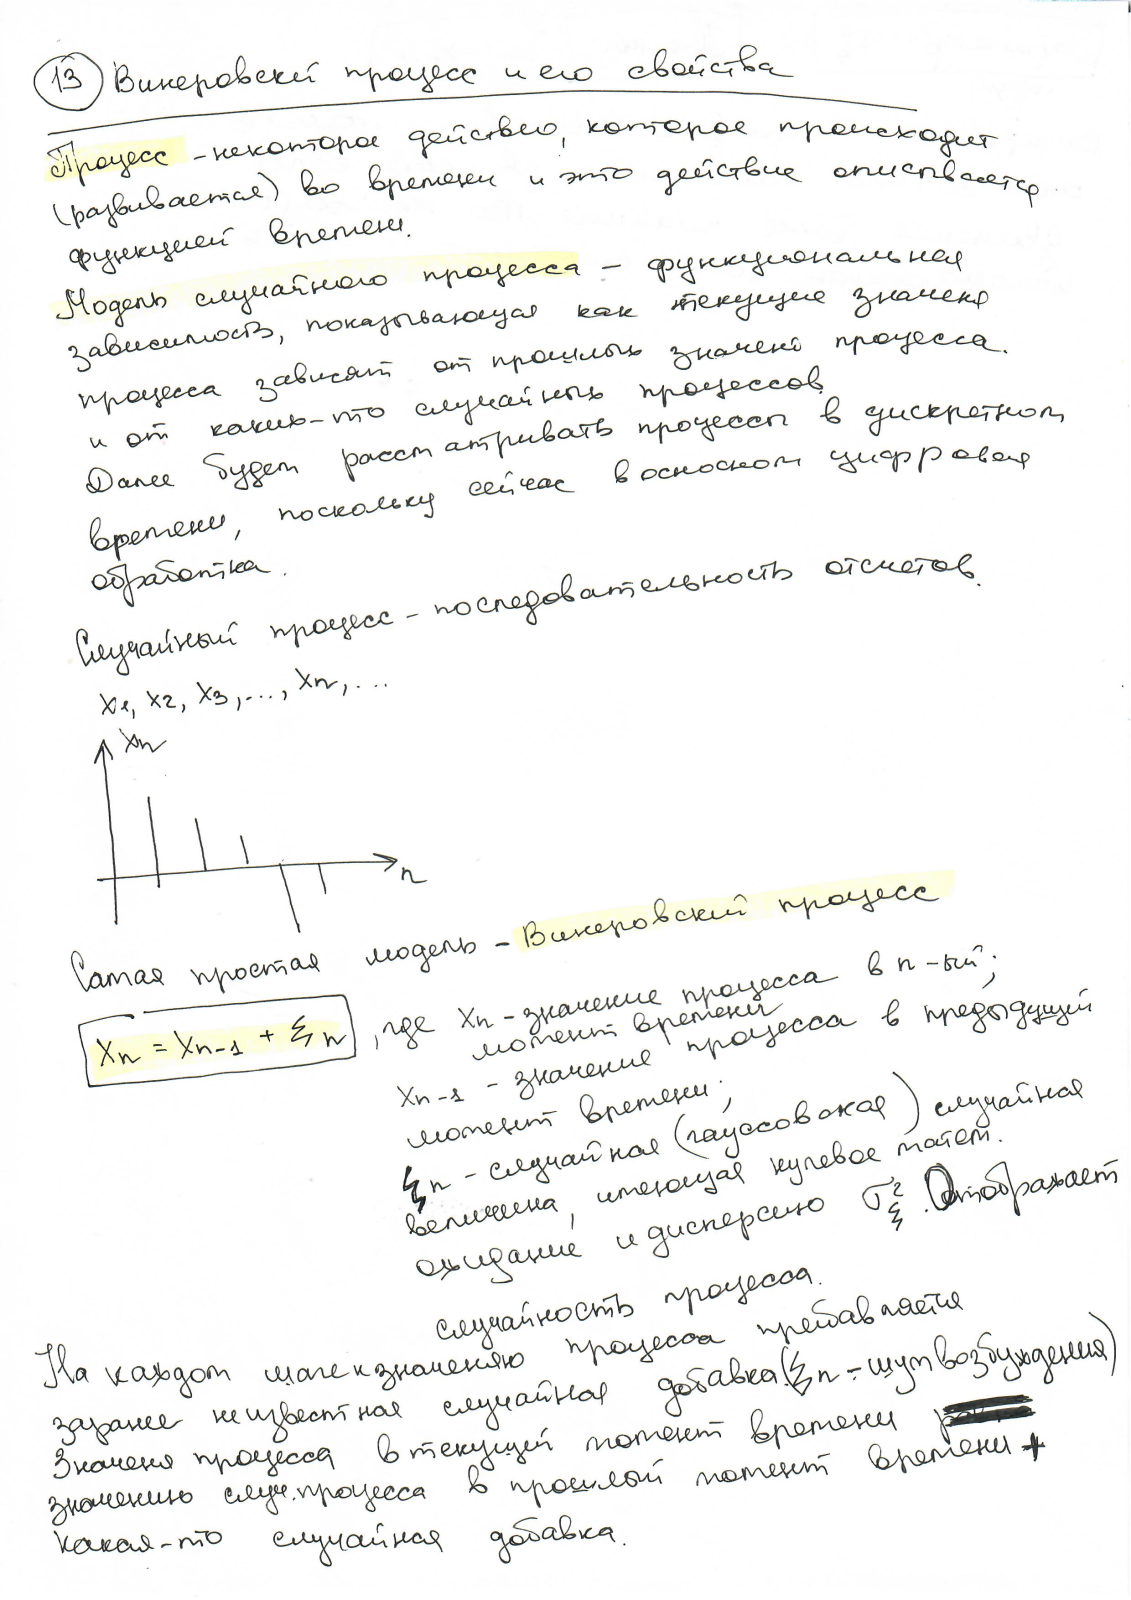 13 Винеровский процесс и его свойства
Процесс - некоторое действие, которое происходит
(развивается) во времени и это действие описывается
функцией времени.
Модель случайного процесса - функциональная
зависимость, показывающая как текущие значеня
процесса зависят от прошлых значений процесса.
и от каких-то случайных процессов
Далее будем рассматривать процессы в дискретном
времени, поскольку сейчас в осносном цифровая
обработка.
Случайный процесс - последовательность отсчетов.
x1, x2, x3, ..., xn, ...
xn
n
Самая простая модель - Винеровский процесс
xn = xn-1 + ξn , где xn - значение процесса в n-ый;
момент времени
xn-1 - значение процесса в предыдущий
момент времени;
ξn - случайная (гауссовская) случайная
величина, имеющая нулевое матем.
ожидание и дисперсию σ²ξ. Отображает
случайность процесса.
На каждом шаге к значеняю процесса прибавляется
заранее неизвестная случайная добавка. (ξn - шум возбуждения)
Значеня процесса в текущей момент времени
значению случ. процесса в прошлый момент времени +
какая-то случайная добавка.